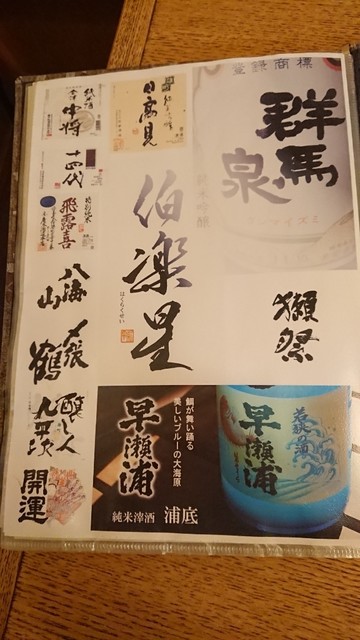 登録商標
群馬
泉
純米吟醸
日高見
純米酒
会津
中将
十四代
特別純米
飛露喜
八海
山
〆張
鶴
醸し人
九平次
開運
伯楽星
はくらくせい
獺
祭
早瀬浦
純米滓酒 浦底
鯛が舞い踊る
美しいブルーの大海原
早瀬浦